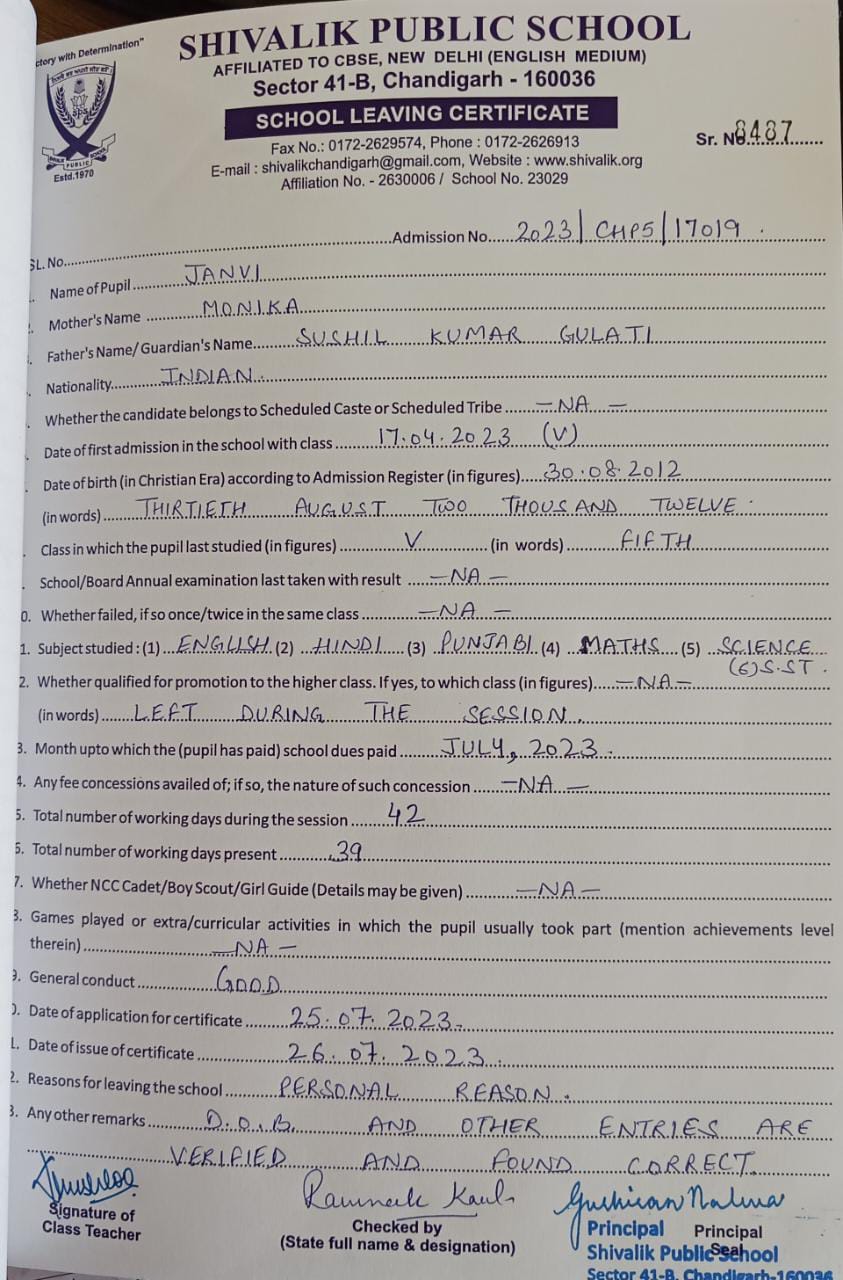 ctory with Determination"
SHIVALIK PUBLIC SCHOOL
AFFILIATED TO CBSE, NEW DELHI (ENGLISH MEDIUM)
Sector 41-B, Chandigarh - 160036
SCHOOL LEAVING CERTIFICATE
Sr. No. 8487
Fax No.: 0172-2629574, Phone : 0172-2626913
E-mail : shivalikchandigarh@gmail.com, Website : www.shivalik.org
Affiliation No. - 2630006 / School No. 23029
PUBLIC SCHOOL
Estd.1970
SL. No. Admission No. 2023/CHP5/17019.
Name of Pupil JANVI
Mother's Name MONIKA
Father's Name/ Guardian's Name SUSHIL KUMAR GULATI
Nationality INDIAN.
Whether the candidate belongs to Scheduled Caste or Scheduled Tribe -NA-
Date of first admission in the school with class 17.04.2023 (V)
Date of birth (in Christian Era) according to Admission Register (in figures) 30.08.2012
(in words) THIRTIETH AUGUST TWO THOUSAND TWELVE.
Class in which the pupil last studied (in figures) V (in words) FIFTH
School/Board Annual examination last taken with result -NA-
0. Whether failed, if so once/twice in the same class -NA-
1. Subject studied : (1) ENGLISH (2) HINDI (3) PUNJABI (4) MATHS (5) SCIENCE
(6) S.ST.
2. Whether qualified for promotion to the higher class. If yes, to which class (in figures) -NA-
(in words) LEFT DURING THE SESSION.
3. Month upto which the (pupil has paid) school dues paid JULY, 2023.
4. Any fee concessions availed of; if so, the nature of such concession -NA-
5. Total number of working days during the session 42
6. Total number of working days present 39
7. Whether NCC Cadet/Boy Scout/Girl Guide (Details may be given) -NA-
8. Games played or extra/curricular activities in which the pupil usually took part (mention achievements level
therein) -NA-
9. General conduct GOOD
0. Date of application for certificate 25.07.2023.
1. Date of issue of certificate 26.07.2023.
2. Reasons for leaving the school PERSONAL REASON.
3. Any other remarks D.O.B. AND OTHER ENTRIES ARE
VERIFIED AND FOUND CORRECT.
Signature of
Class Teacher
Checked by
(State full name & designation)
Principal Principal
Seal
Shivalik Public School
Sector 41-B, Chandigarh-160036